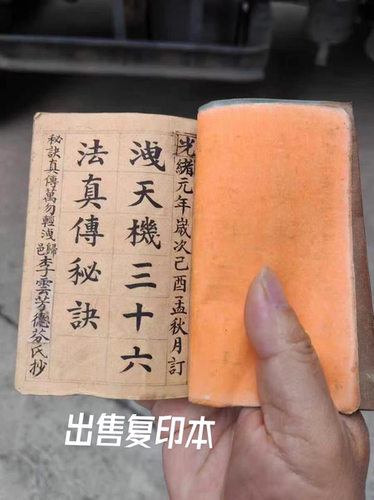 光緒元年歲次己酉孟秋月訂
洩天機三十六
法真傳秘訣
秘訣真傳萬勿輕洩歸邑李雲芳德芬氏抄
出售复印本